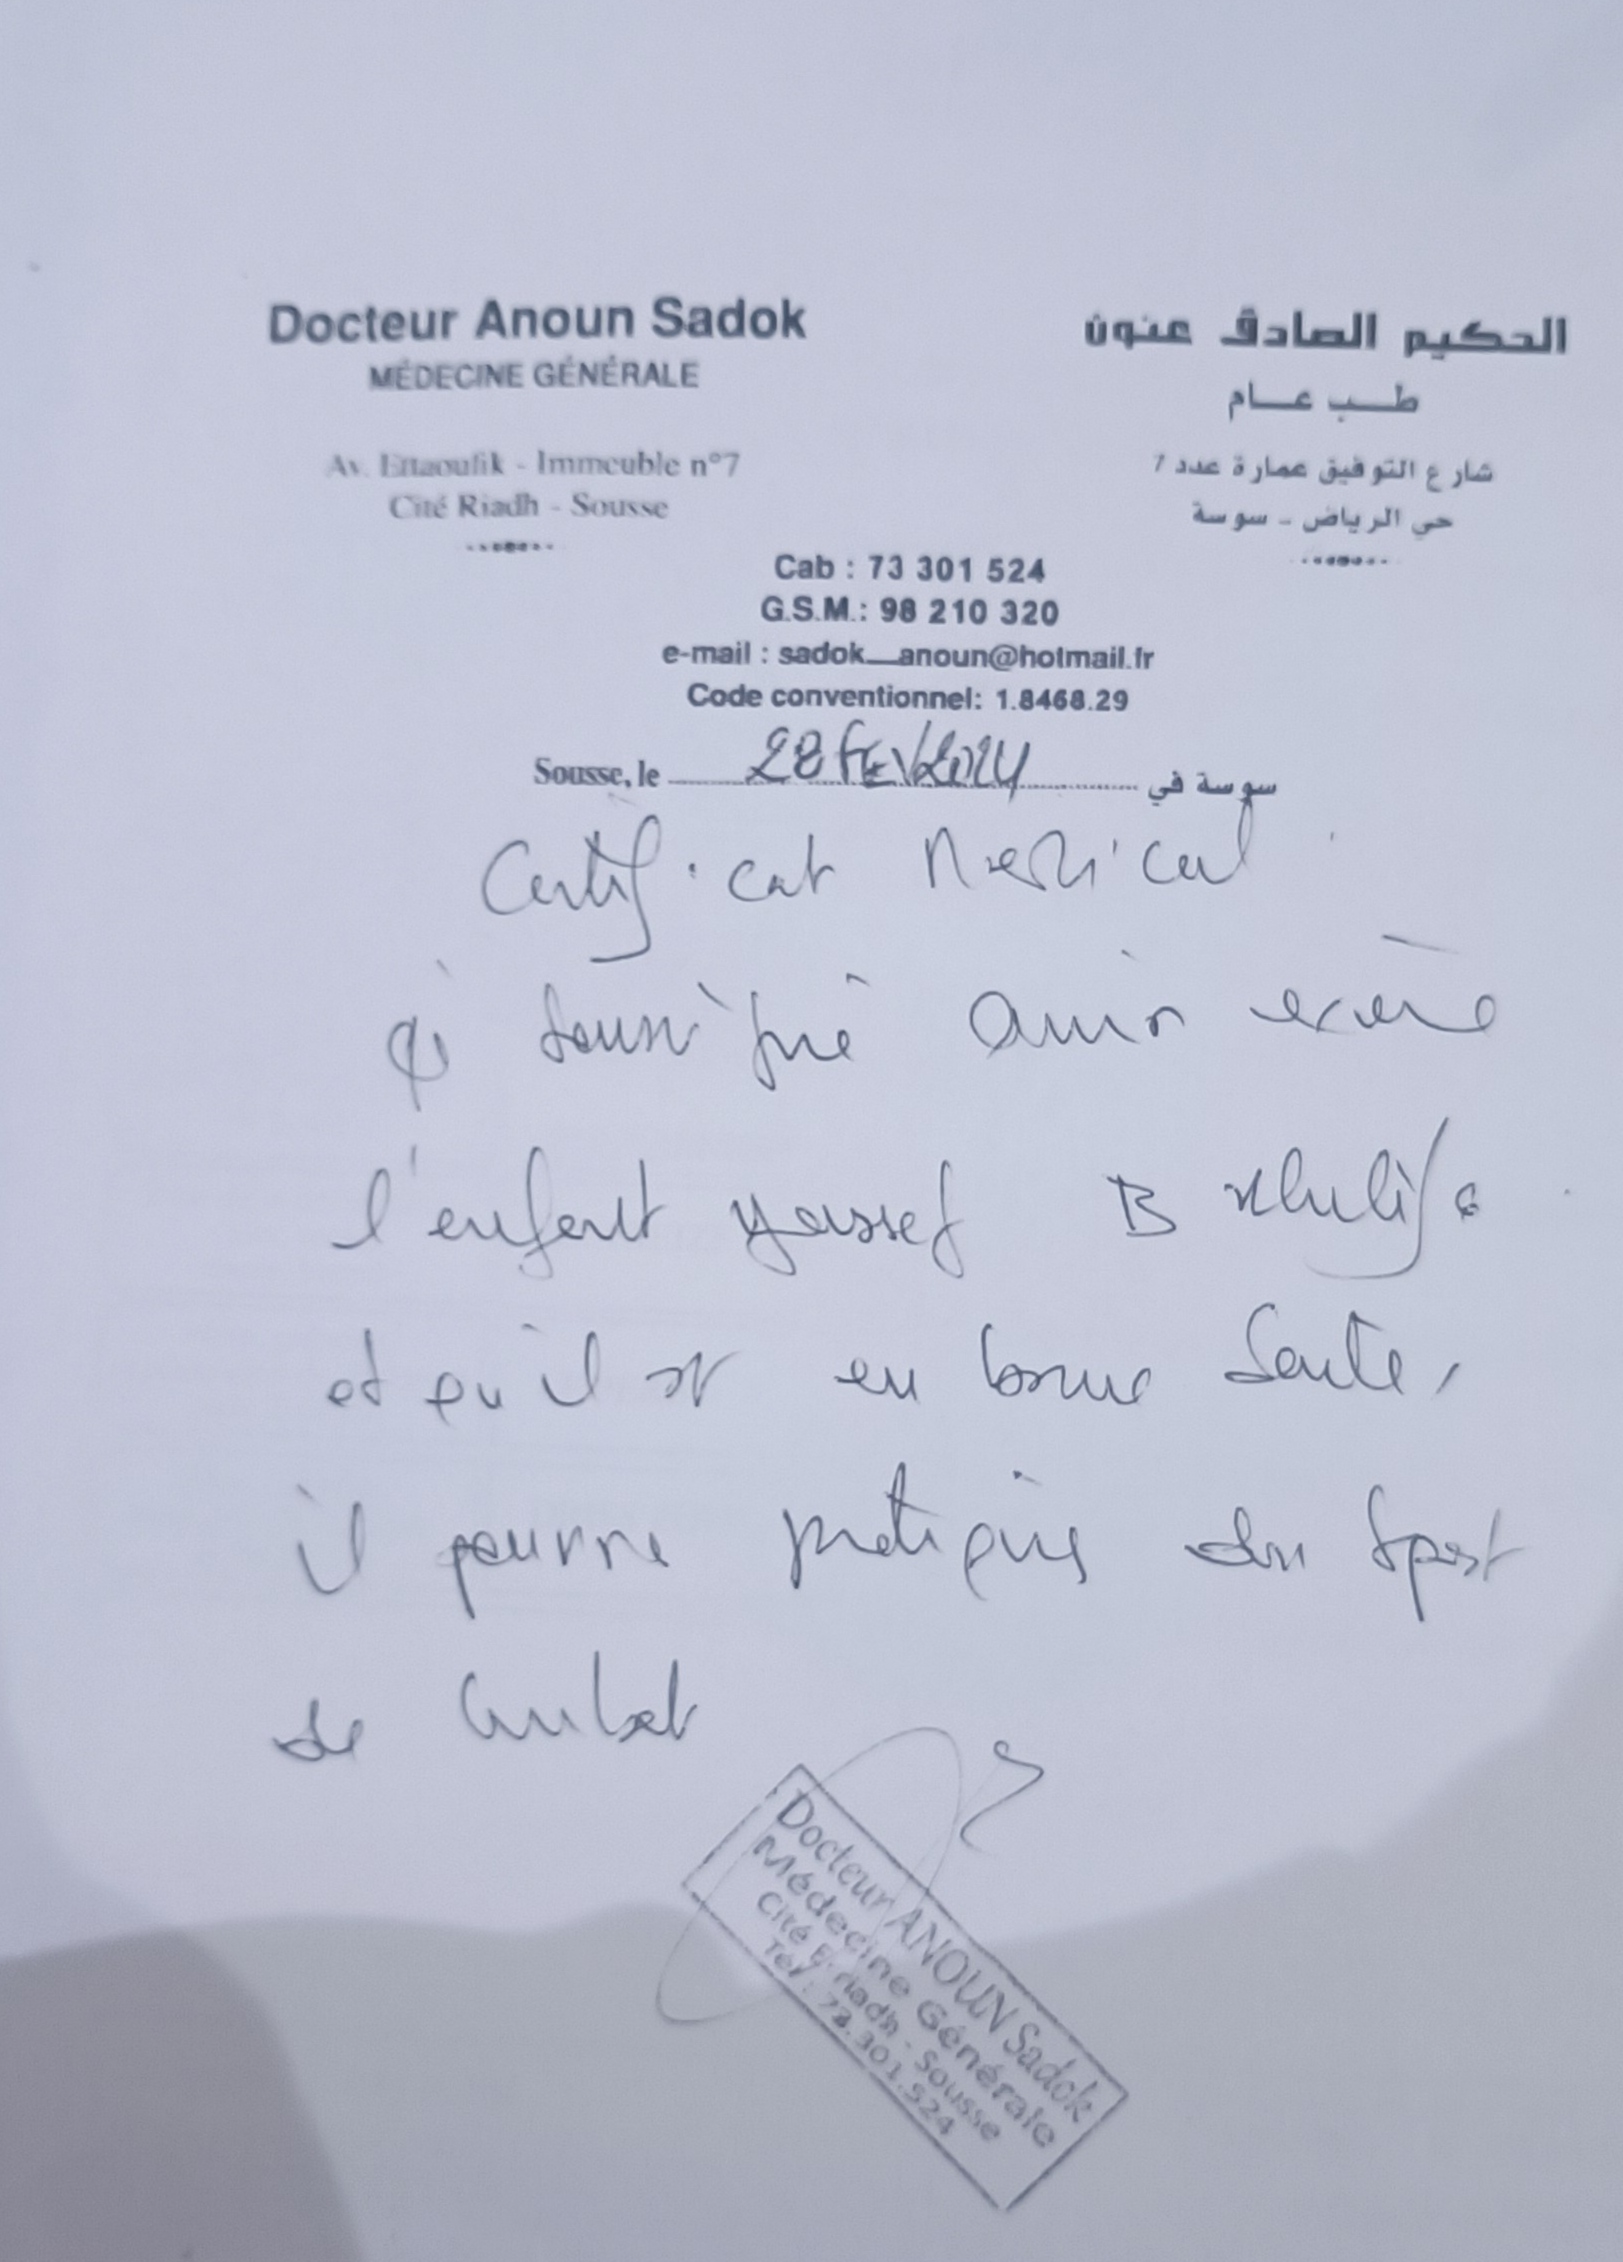 Docteur Anoun Sadok
MÉDECINE GÉNÉRALE
Av. Ettaoufik - Immeuble n°7
Cité Riadh - Sousse
الحكيم الصادق عنون
طب عام
شارع التوفيق عمارة عدد 7
حي الرياض - سوسة
Cab : 73 301 524
G.S.M.: 98 210 320
e-mail : sadok_anoun@hotmail.fr
Code conventionnel: 1.8468.29
Sousse, le 28 FEV 2024 سوسة في
Certificat Medical
Je soussigné avoir examiné
l'enfant Youssef B Khalifa
et qu'il est en bonne Santé,
il pourra pratiquer du Sport
de Combat
Docteur ANOUN Sadok
Médecine Générale
Cité Erriadh - Sousse
Tél : 73.301.524